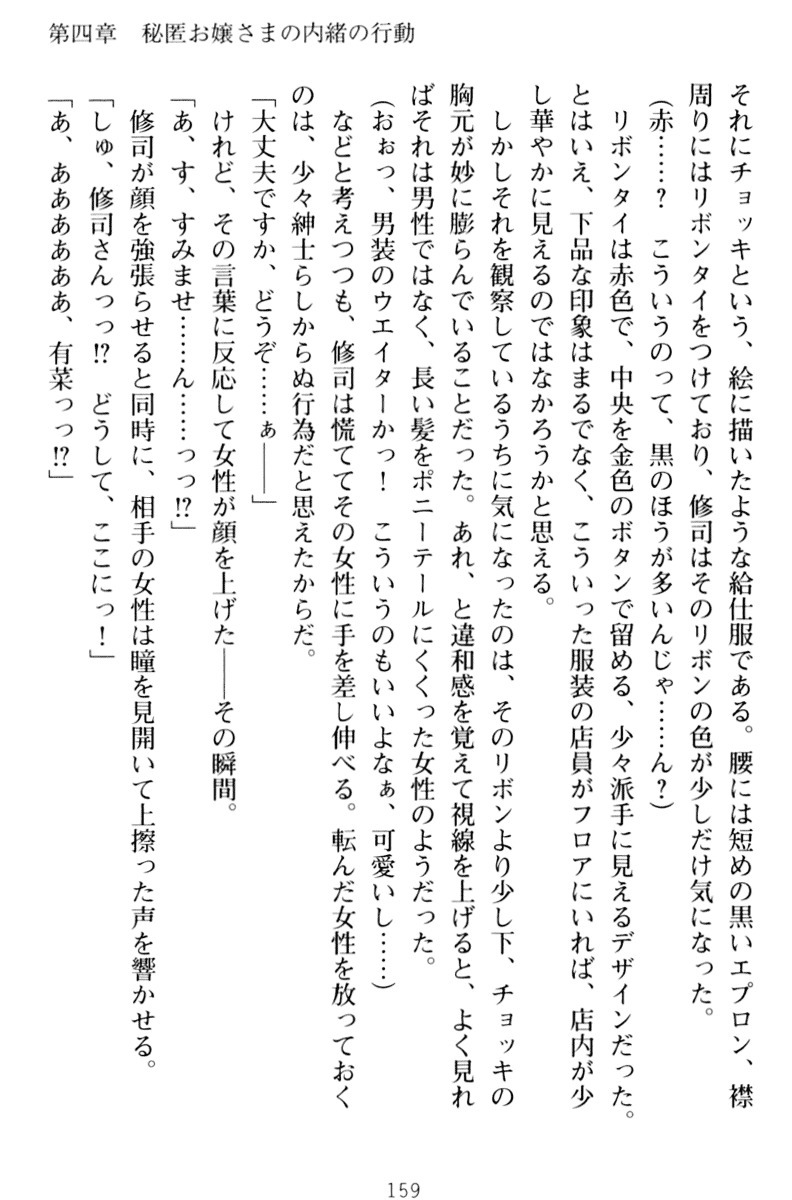 第四章　秘匿お嬢さまの内緒の行動
それにチョッキという、絵に描いたような給仕服である。腰には短めの黒いエプロン、襟
周りにはリボンタイをつけており、修司はそのリボンの色が少しだけ気になった。
（赤……？　こういうのって、黒のほうが多いんじゃ……ん？）
　リボンタイは赤色で、中央を金色のボタンで留める、少々派手に見えるデザインだった。
とはいえ、下品な印象はまるでなく、こういった服装の店員がフロアにいれば、店内が少
し華やかに見えるのではなかろうかと思える。
　しかしそれを観察しているうちに気になったのは、そのリボンより少し下、チョッキの
胸元が妙に膨らんでいることだった。あれ、と違和感を覚えて視線を上げると、よく見れ
ばそれは男性ではなく、長い髪をポニーテールにくくった女性のようだった。
（おぉっ、男装のウエイターかっ！　こういうのもいいよなぁ、可愛いし……）
　などと考えつつも、修司は慌ててその女性に手を差し伸べる。転んだ女性を放っておく
のは、少々紳士らしからぬ行為だと思えたからだ。
「大丈夫ですか、どうぞ……ぁ――」
　けれど、その言葉に反応して女性が顔を上げた――その瞬間。
「あ、す、すみませ……ん……っっ!?」
　修司が顔を強張らせると同時に、相手の女性は瞳を見開いて上擦った声を響かせる。
「しゅ、修司さんっっ!?　どうして、ここにっ！」
「あ、ああああああ、有菜っっ!?」
159